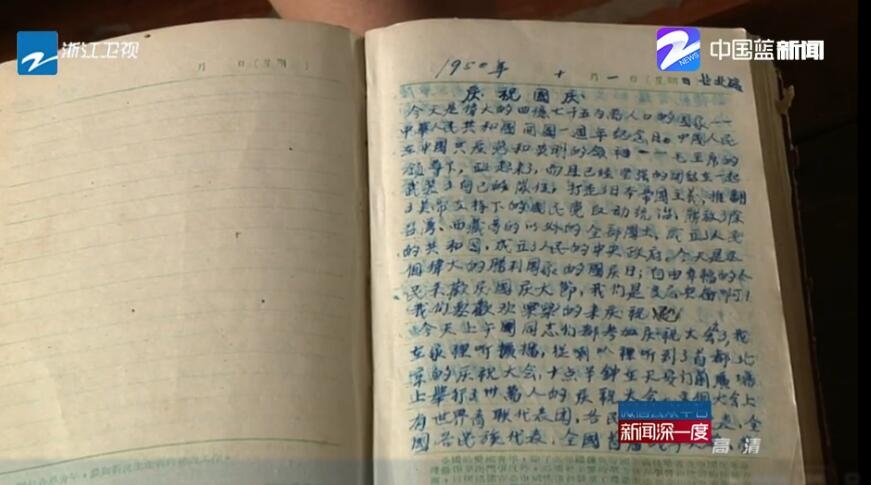 浙江卫视
中国蓝新闻
NEWS
月 日(星期 )
1950年 十月一日(星期日
庆祝國庆
今天是偉大的四億七千五百萬人口的國家——
中華人民共和國開國一週年纪念日。中國人民
在中國共産党和英明的领袖——毛主席的
领導下，站起来了，而且已经坚强的团结在一起
武装了自己的 打走了日本帝國主义，推翻
了美帝支持下的國民党反动统治，解放了除
台湾、西藏等的以外的全部國土，成立了人民
的共和国，成立了人民的中央政府。今天是这
個偉大的勝利國家的國庆日；自由幸福的人
民来歡庆國庆大節，我们是
我们要歡欢樂樂的来庆祝
今天上午國同志们都参加庆祝大会了，我
在家裡听播，從喇叭裡听到了首都北
京的庆祝大会，十点半鐘在天安门前廣場
上舉行了 萬人的庆祝大会，這個大会上
有世界青联代表团，各民 表，全
國各民族代表，全國
微信公众平台
新闻深一度
高清